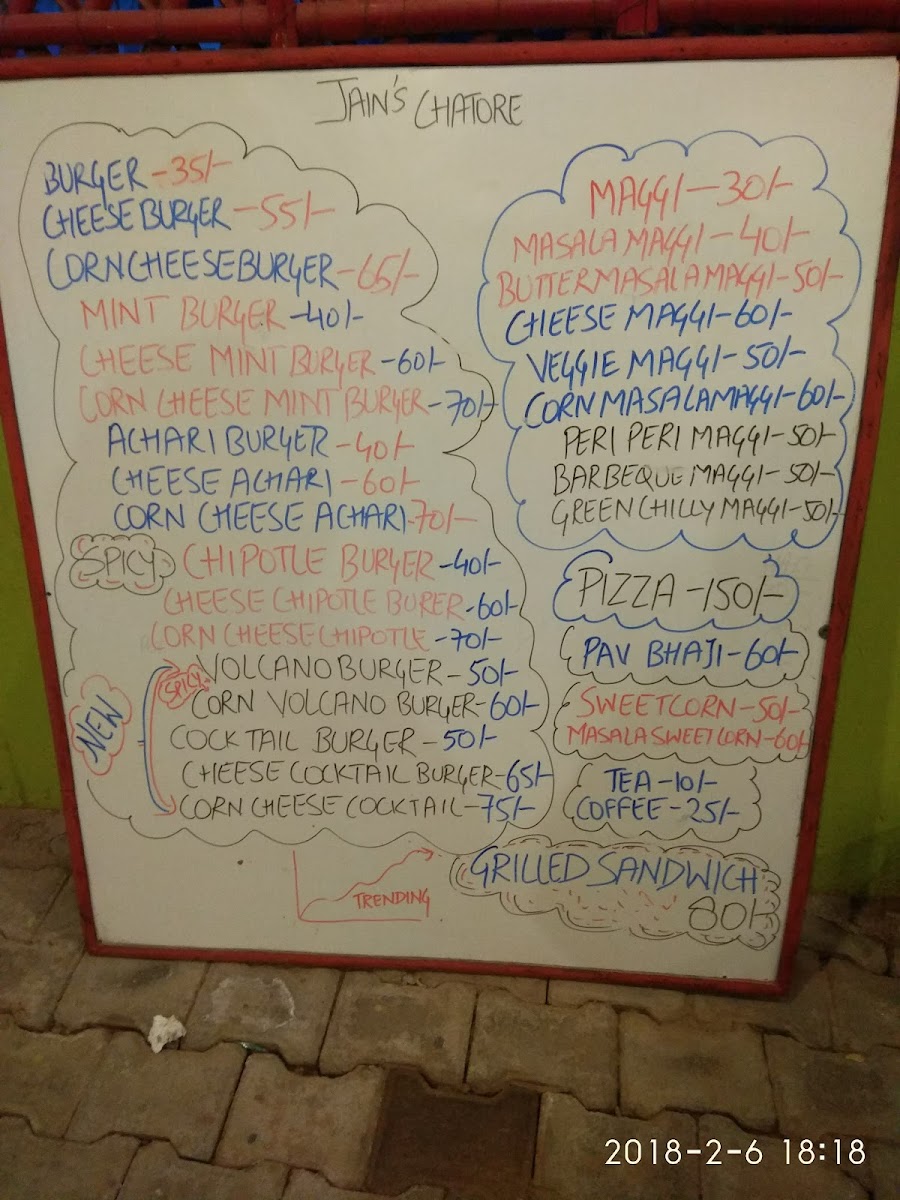 JAIN'S CHATORE
BURGER -35/-
CHEESE BURGER -55/-
CORN CHEESE BURGER -65/-
MINT BURGER -40/-
CHEESE MINT BURGER -60/-
CORN CHEESE MINT BURGER -70/-
ACHARI BURGER -40/-
CHEESE ACHARI -60/-
CORN CHEESE ACHARI -70/-
SPICY CHIPOTLE BURGER -40/-
CHEESE CHIPOTLE BURER -60/-
CORN CHEESE CHIPOTLE -70/-
NEW
SPICY
VOLCANO BURGER -50/-
CORN VOLCANO BURGER -60/-
COCKTAIL BURGER -50/-
CHEESE COCKTAIL BURGER -65/-
CORN CHEESE COCKTAIL -75/-
TRENDING
MAGGI -30/-
MASALA MAGGI -40/-
BUTTER MASALA MAGGI -50/-
CHEESE MAGGI -60/-
VEGGIE MAGGI -50/-
CORN MASALA MAGGI -60/-
PERI PERI MAGGI -50/-
BARBEQUE MAGGI -50/-
GREEN CHILLY MAGGI -50/-
PIZZA -150/-
PAV BHAJI -60/-
SWEETCORN -50/-
MASALA SWEETCORN -60/-
TEA -10/-
COFFEE -25/-
GRILLED SANDWICH
80/-
2018-2-6 18:18